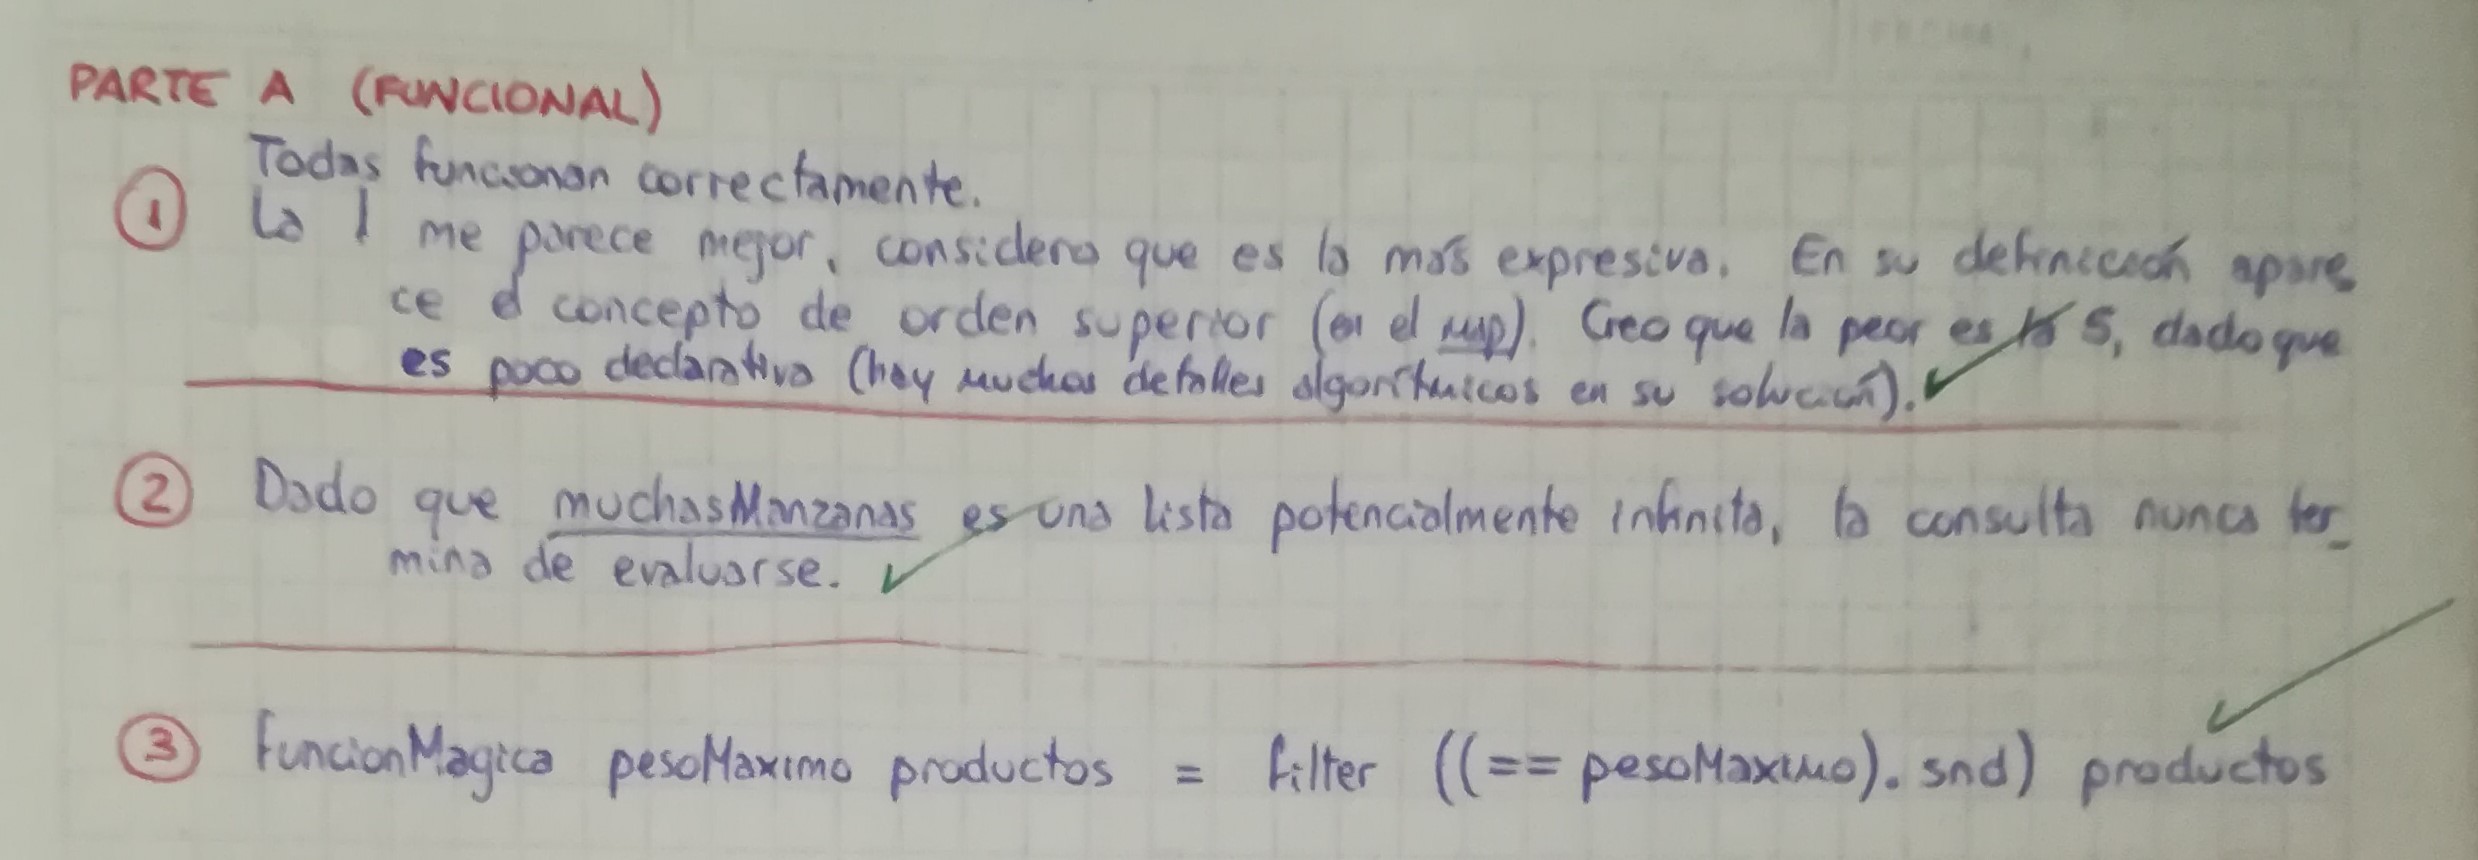 PARTE A (FUNCIONAL)
Todas funcionan correctamente.
① La 1 me parece mejor, considero que es la más expresiva. En su definición apare
ce el concepto de orden superior (en el map). Creo que la peor es la 5, dado que
es poco declarativa (hay muchos detalles algorítmicos en su solución).
② Dado que muchasManzanas es una lista potencialmente infinita, la consulta nunca ter_
mina de evaluarse.
③ funcionMagica pesoMaximo productos = filter ((== pesoMaximo). snd) productos